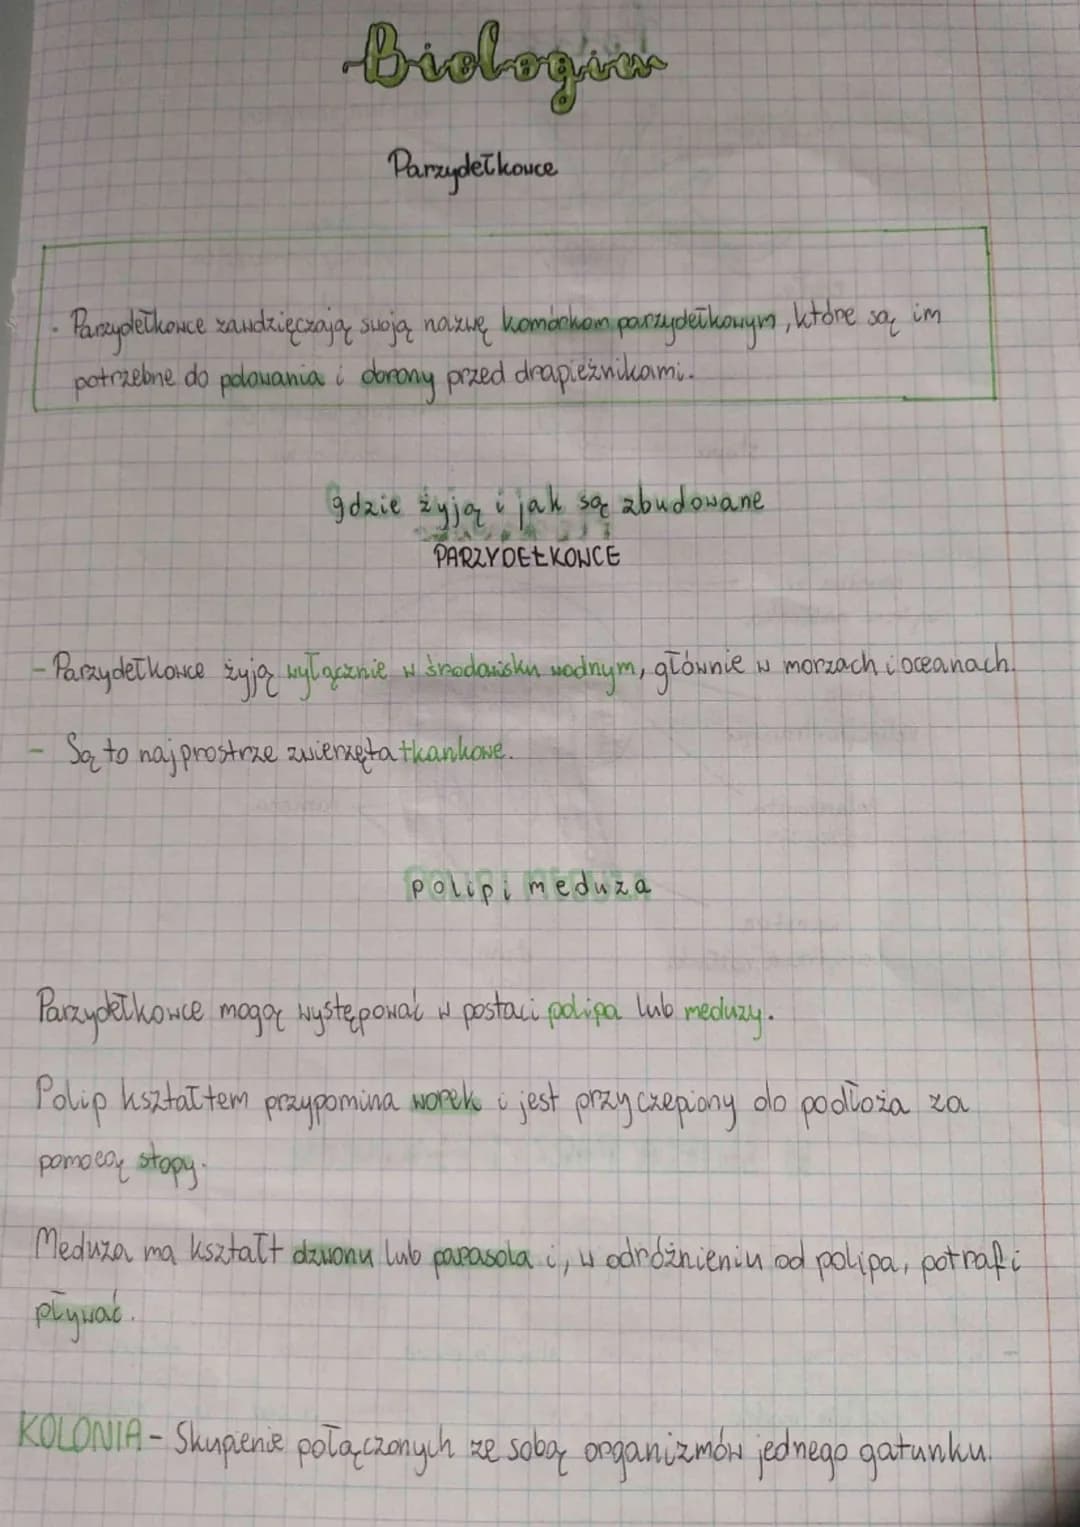 Biologia
Parzydełkowce
· Parzydełkowce zawdzięczają swoją nazwę komórkom parzydełkowym, które są im
potrzebne do polowania i obrony przed drapieżnikami.
gdzie żyją i jak są zbudowane
PARZYDEŁKOWCE
- Parzydełkowce żyją wyłącznie w środowisku wodnym, głównie w morzach i oceanach.
- Są to najprostrze zwierzęta tkankowe.
polip i meduza
Parzydełkowce mogą występować w postaci polipa lub meduzy.
Polip kształtem przypomina worek i jest przyczepiony do podłoża za
pomocą stopy.
Meduza ma kształt dzwonu lub parasola i, w odróżnieniu od polipa, potrafi
pływać.
KOLONIA - Skupienie połączonych ze sobą organizmów jednego gatunku.